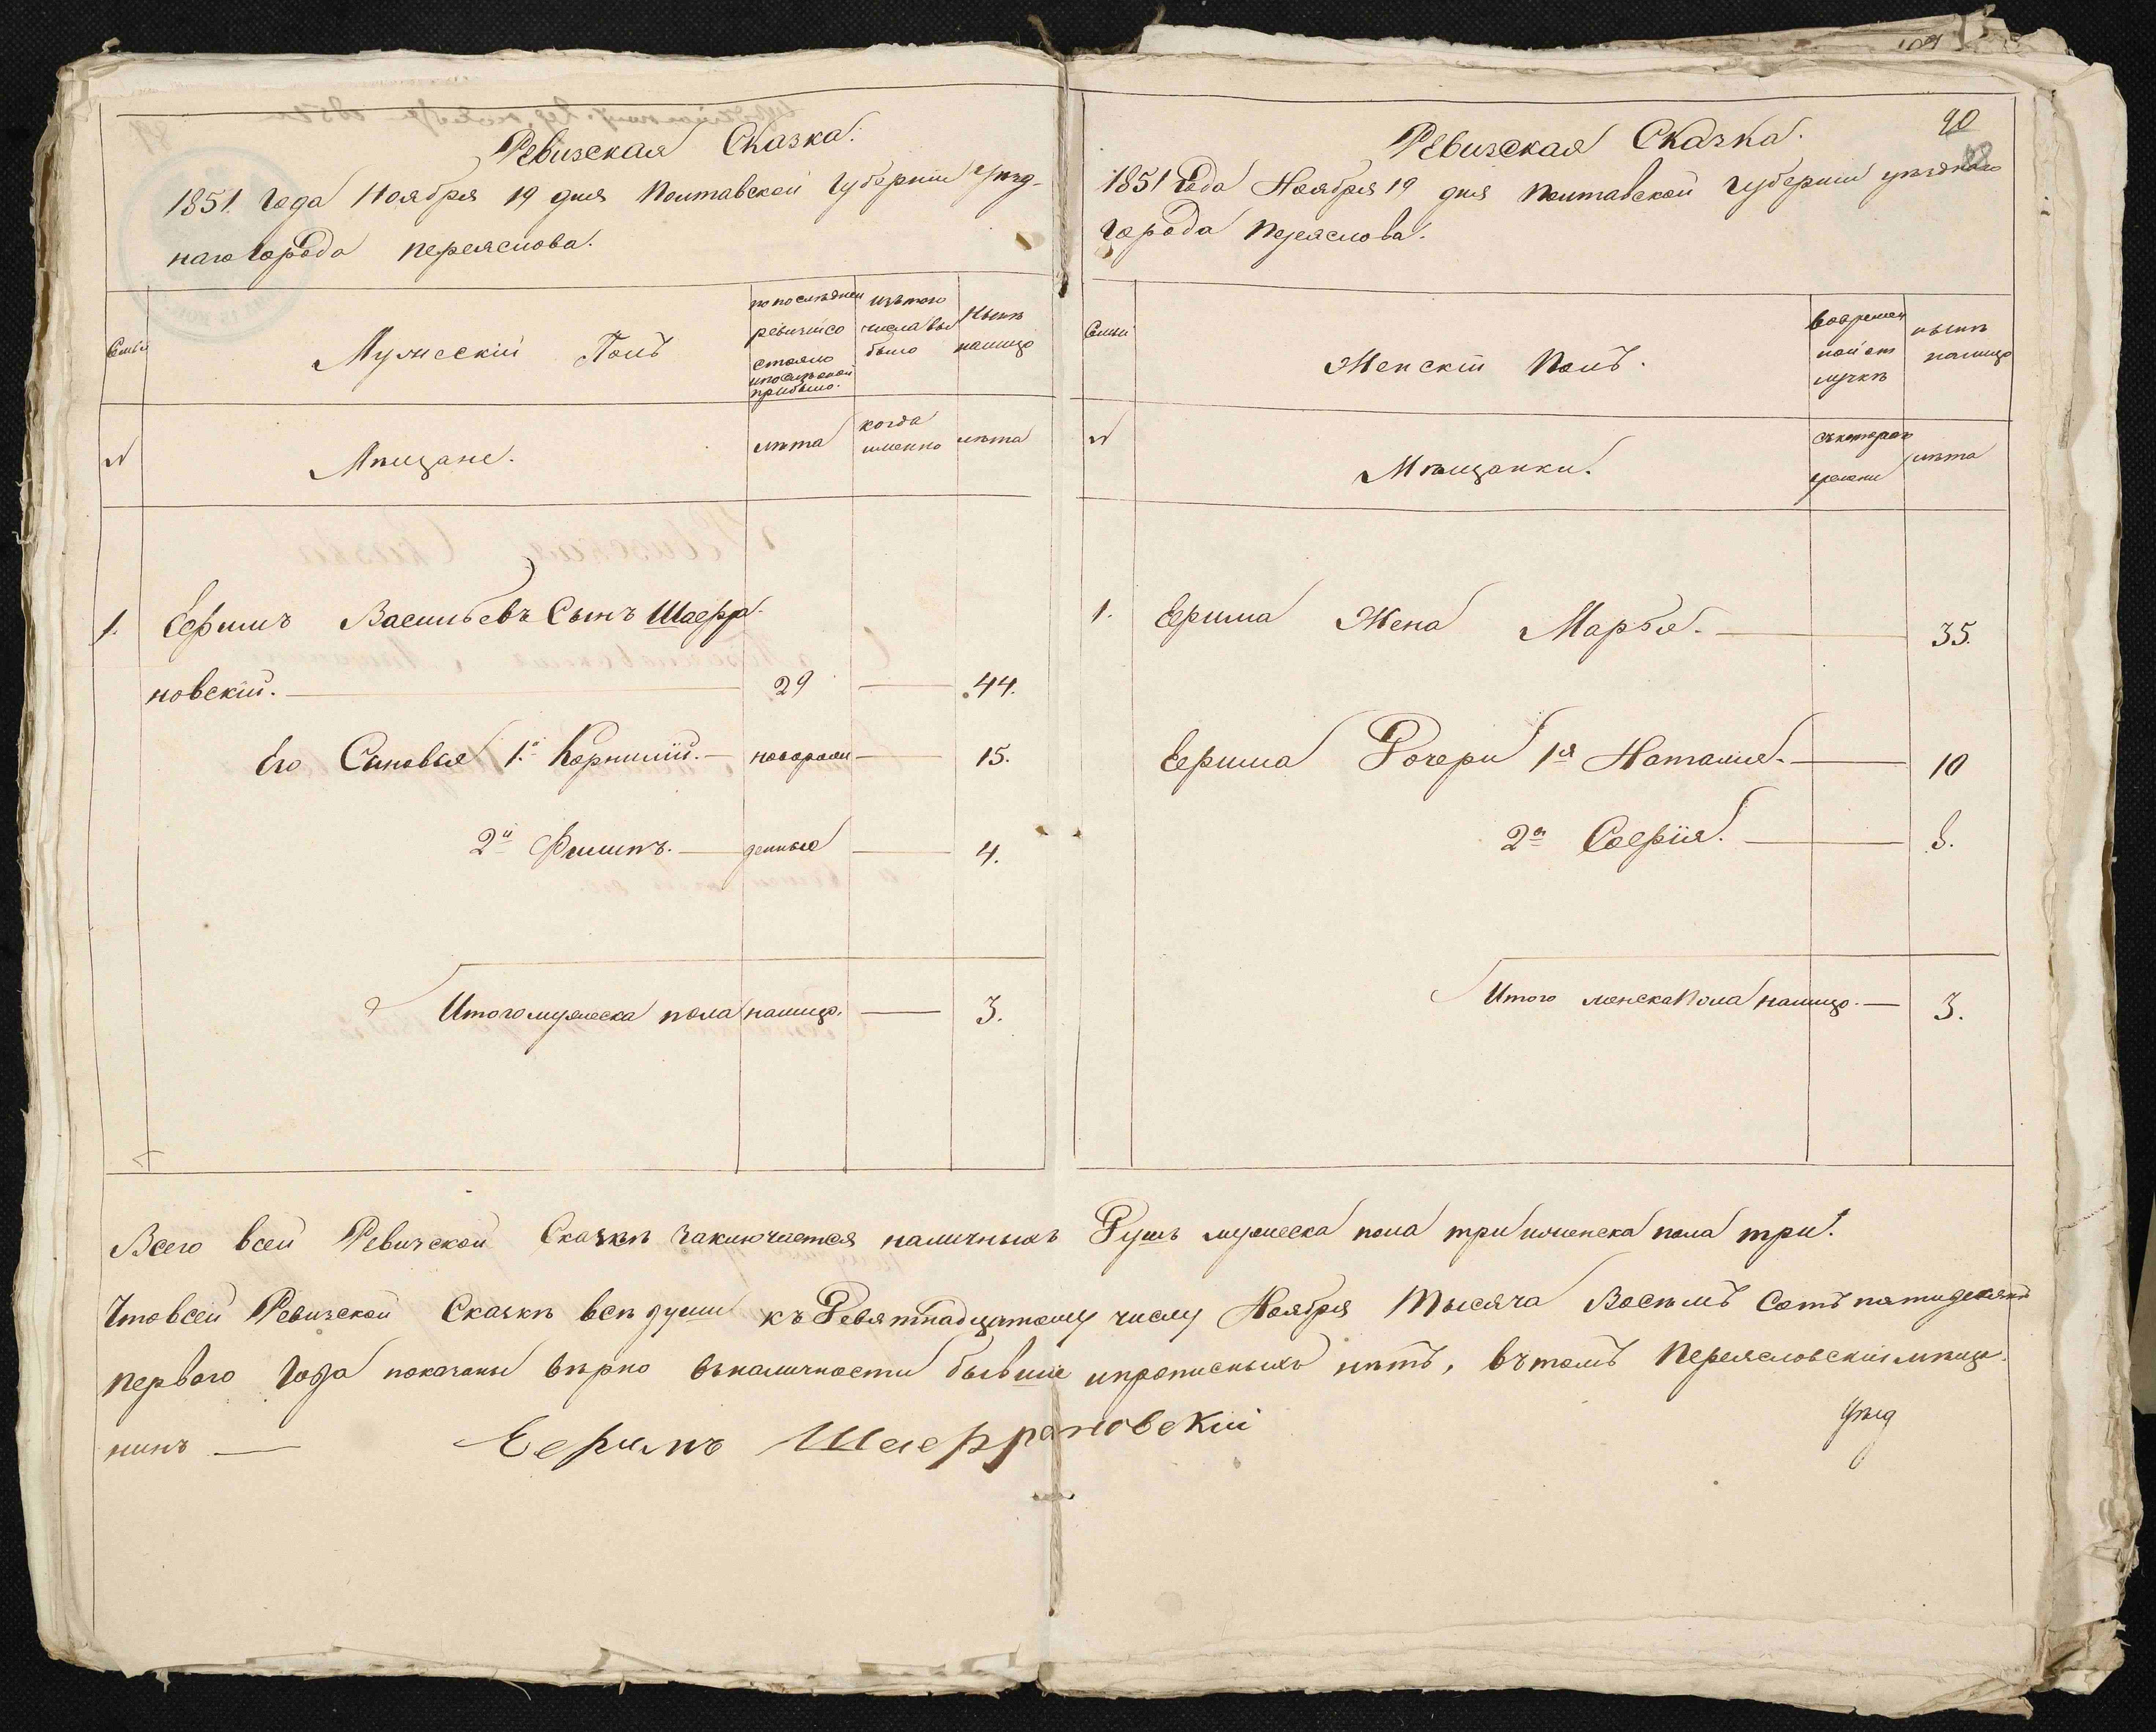 Ревизская Сказка.
1851. Года Ноября 19 дня Полтавской Губернии Уѣзд-
наго Города Переяслова.
Семьи
Мужескій Полъ
по последней
ревизіи со
стояло
и после оной
прибыло.
изъ того
числа вы
было
Нынѣ
налицо
№
Мѣщане.
лѣта
когда
именно
лѣта
1. Ефимъ Васильевъ Сынъ Шафра-
новскій. 29 44.
Его Сыновья 1й Корнилій. новорож 15.
2й Филипъ. денные 4.
Итого мужеска пола налицо. 3.
90
Ревизская Сказка.
1851 Года Ноября 19 дня Полтавской Губернии уѣзднаго
Города Переяслова.
Семьи
Женскій Полъ.
во времен
ной от
лучкѣ
нынѣ
налицо
№
Мѣщанки.
съ котораго
времени
лѣта
1. Ефима Жена Марфа. 35.
Ефима Дочери 1я Наталия. 10
2я Софія. 8.
Итого женска пола налицо. 3.
Всего в сей Ревизской Сказкѣ заключается наличныхъ Душъ мужеска пола три и женска пола три.
Что в сей Ревизской Сказкѣ всѣ души къ Девятнадцатому числу Ноября Тысяча Восемъ Сотъ пятидесятъ
первого Года показаны вѣрно въ наличности бывшие и прописныхъ нѣтъ, въ томъ Переясловский мѣща-
нинъ Ефимъ Шафрановскій